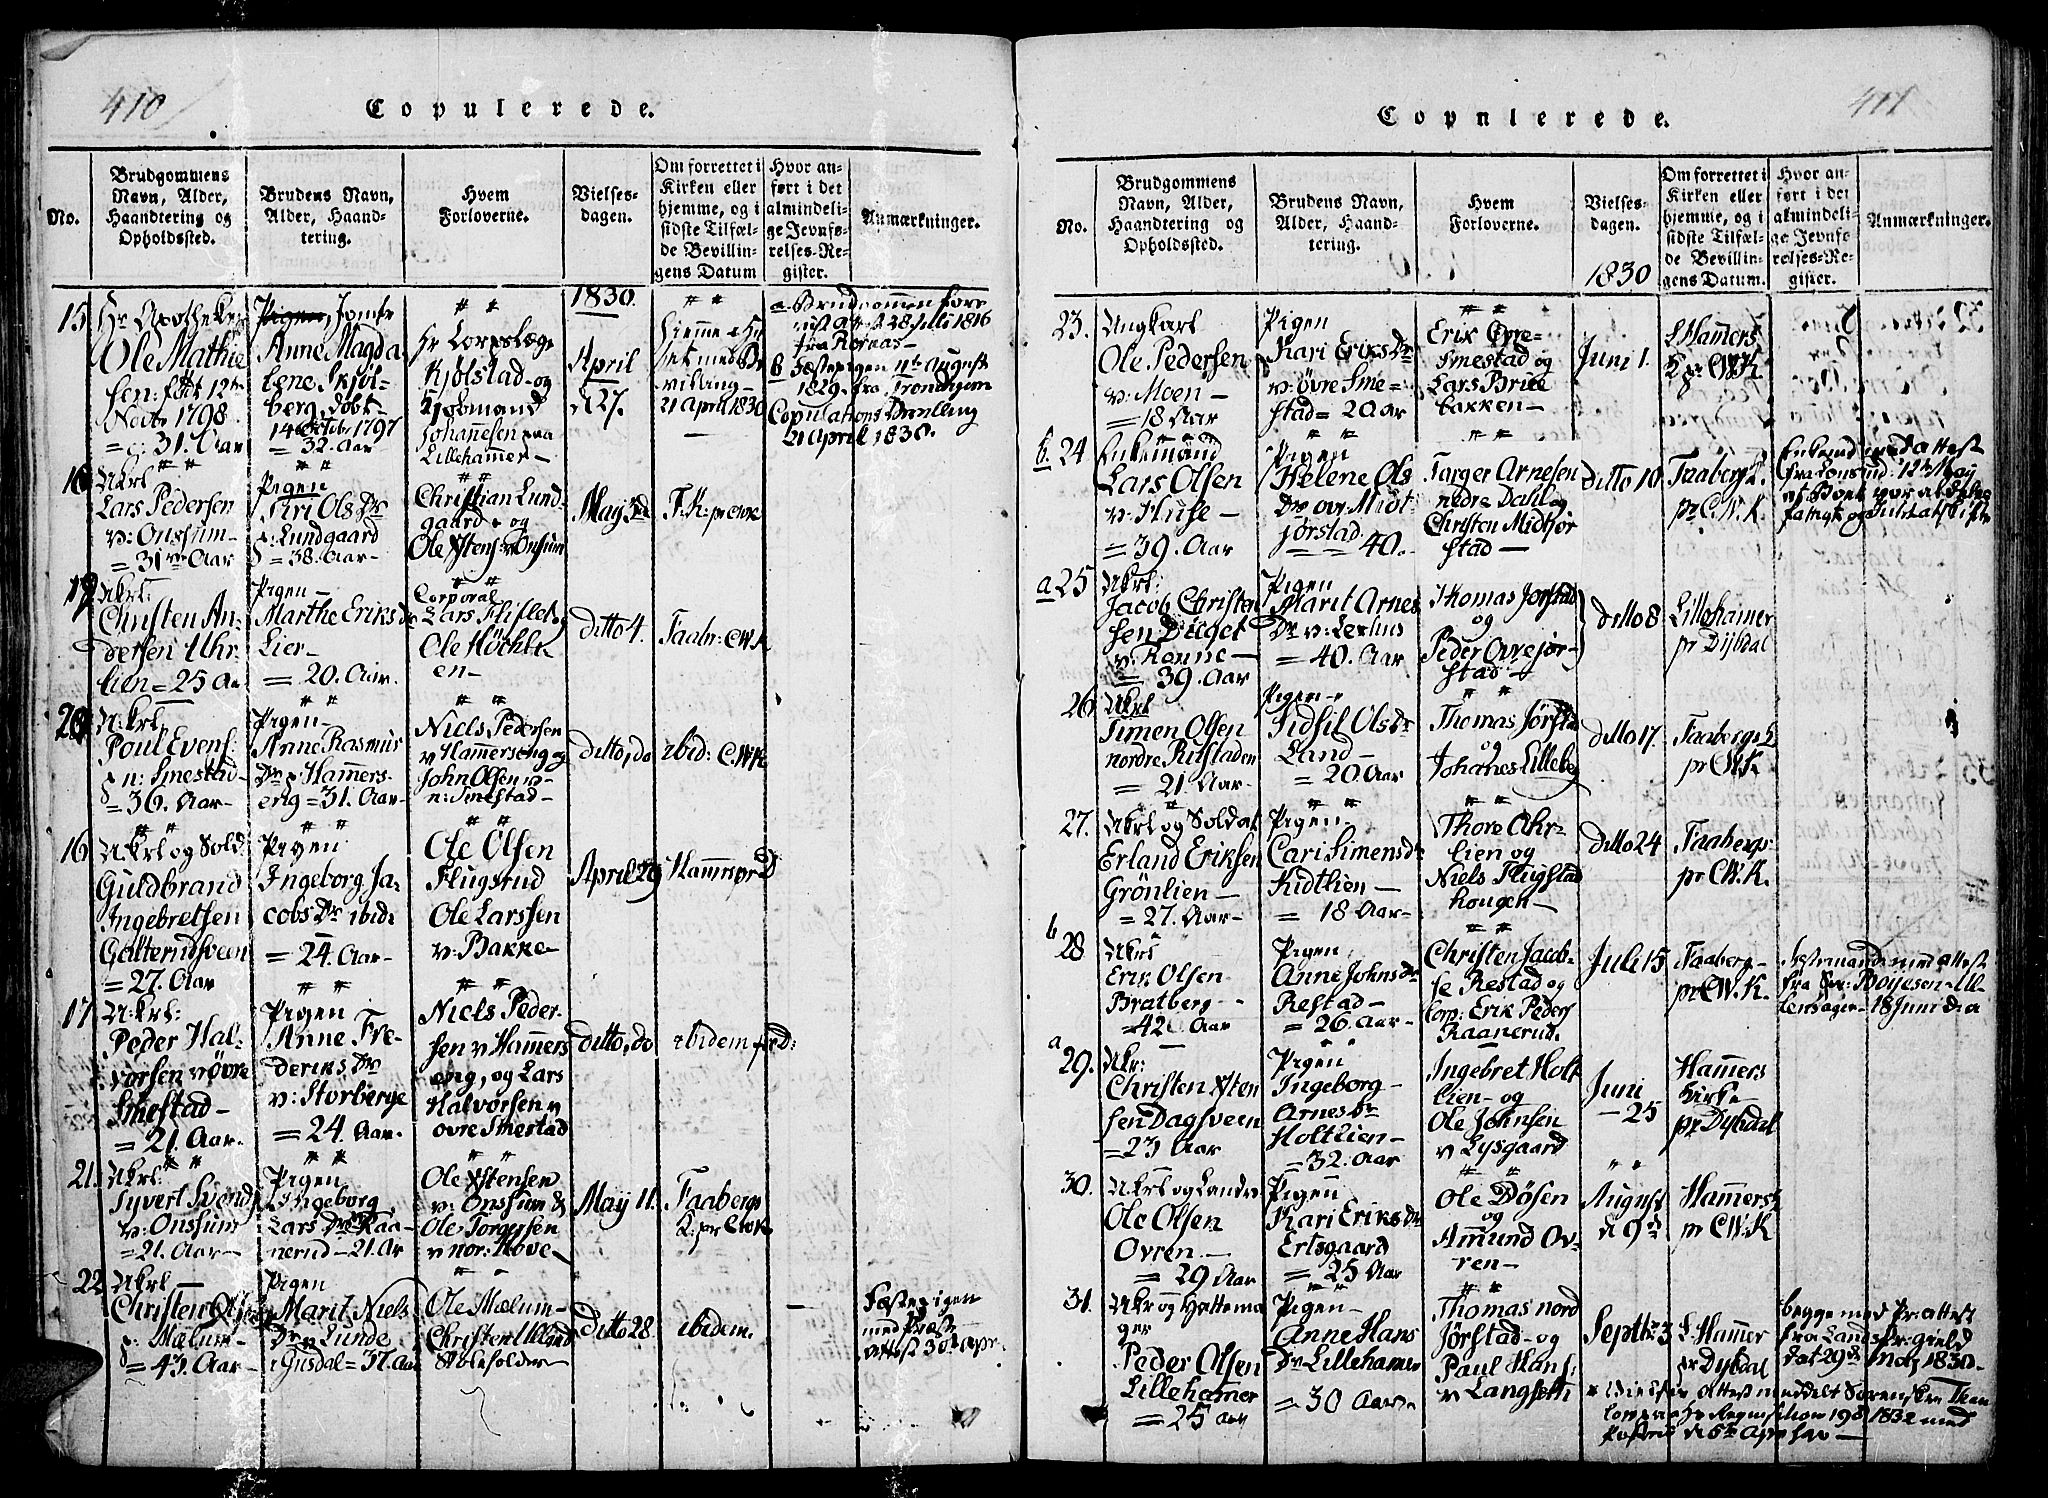 410
Copulerede.
No.
Brudgommens
Navn, Alder,
Haandtering og
Opholdssted.
Brudens Navn,
Alder, Haand-
tering.
Hvem
Forloverne.
Vielses-
dagen.
Om forrettet i
Kirken eller
hjemme, og i
sidste Tilfæl-
de Bevillin-
gens Datum
Hvor an-
ført i det
almindeli-
ge Jevnfø-
relses-Re-
gister.
Anmærkninger.
1830.
15
Hr Apotheker
Ole Mathie
sen: født 12te
Novbr 1798.
= 31. Aar
Pigen, Jomfr
Anne Magda
lene Skjöl-
berg, döbt
14 Octobr 1797
= 32. Aar
Hr Corpslæge
Kjölstad og
Kjøbmand
Johannesen paa
Lillehammer
April
d 27.
Hjemme
21 April 1830
a Brudgommen
28 Juli 1816
fra Röraas
B Fæstepigen 11te August
1829. fra Trondhjem
Copulations
21 April 1830.
18
Ukrl
Lars Pedersen
v: Onssum
= 31 Aar
Pigen
Kri Ols Dr
p: Lundgaard
= 38. Aar
Christian Lund-
gaard og
Ole Xstens: v Onsum
May 3de
F. K: pr CWK
19
Ukrl:
Christen An-
dersen Uhr-
lien = 25 Aa
Pigen
Marthe Eriks Dr
Lier
= 20. Aar.
Corporal
Lars Fliflet og
Ole Höchle-
en
ditto 4.
Faab: CWK
20
Ukrl
Poul Evens:
p n: Smestad
= 36. Aar
Pigen
Anne Rasmus
Dr p Hammers-
eng = 31. Aar
Niels Pedersen
v Hammerseng og
John Olsen
n: Smestad
ditto, do
ibid: C.WK
16
Ukrl og Sold
Guldbrand
Ingebretsen
Galterudsveen
= 27. Aar
Pigen
Ingeborg Ja-
cobs Dr ibid:
= 24. Aar
Ole Olsen
Flugsrud
Ole Larssen
v: Bakke
April 29
Hammer pr D
17
Ukrl:
Peder Hal-
vorsen v övre
Smestad
= 21. Aar.
Pigen
Anne Fre-
deriks Dr
v: Storberge
= 24. Aar.
Niels Peder-
sen v Hammers
eng, og Lars
Halvorsen v
ovre Smestad
ditto, do
ibidem pr D:
21.
Ukrl:
Syvert Svend
v: Onssum
= 21. Aar
Pigen
Ingeborg
Lars Dr Raa-
nerud 21. Ar
Ole Xstensen
v: Onssum &
Ole Torgersen
v nor: Hove
May 11.
Faabergs
K: pr CWK
22
Ukrl
Christen Ols
p: Mælum
= 43. Aar
Pigen
Marit Niels
Dr v Lunde
i Gusdal = 37. Aar
Ole Mælum
Christen Ulland
Skoleholder
Ditto 28.
ibidem.
Fæstepigen
med Præste
Attest 30te Apr.
411
Copulerede.
No.
Brudgommens
Navn, Alder,
Haandtering og
Opholdssted.
Brudens Navn,
Alder, Haand-
tering.
Hvem
Forloverne.
Vielses-
dagen.
1830
Om forrettet i
Kirken eller
hjemme, og i
sidste Tilfæl-
de Bevillin-
gens Datum.
Hvor an-
ført i det
almindeli-
ge Jevnfø-
relses-Re-
gister.
Anmærkninger.
23.
Ungkarl
Ole Pedersen
v: Moen
= 18 Aar
Pigen
Kari Eriks Dr
v: övre Sme-
stad = 20 Aar
Erik Ovre-
Smestad og
Lars Brue
bakken
Juni 1.
L Hammers
K pr CWK
b. 24
Enkemand
Lars Olsen
v: Huse
= 39. Aar
Pigen
Helene Ols
Dr ovr Midt
jörstad.
= 40.
Targer Arnesen
nedre Dahl og
Christen Midtjör
stad
ditto 10
Faaberg K.
pr C.W.K.
Enkemd med Attest
12te May
a 25
Ukrl:
Jacob Christen
sen Diget
v: Rönne
= 39. Aar
Pigen
Marit Arnes
Dr v: Lerhus
= 40. Aar
Thomas Jorstad
og
Peder Ovrejör-
stad
ditto 8
Lillehamer
pr Dybdal
26
Ukrl
Simen Olsen
nordre Rutstaden
= 21. Aar
Pigen
Sidsil Ols Dr
Land
= 20. Aar
Thomas Jørsta
og
Johanes Lilleberg
ditto 17.
Faabergs K
pr CWK.
27.
Ukrl og Soldat
Erland Eriksen
Grönlien
= 27. Aar
Pigen
Cari Simens Dr
Kidtlien
= 18 Aar
Thore Uhr-
lien og
Niels Flugstad
hougen
ditto 24
Faabergs
pr CWK.
b
28
Ukrl
Erik Olsen
Bratberg
= 42 Aar
Pigen
Anne Johns Dr
Restad
= 26. Aar
Christen Jacob-
se Restad og
Corp: Erik Peders
Raanerud
Juli 15
Faaberg
pr CW.K.
Fæstemanden med Attest
fra Boijesen Ul-
lensager 18 Juni d: a
a
29.
Ukr:
Christen Xsten
sen Dagsveen
= 23 Aar
Pigen
Ingeborg
Arnes Dr
Holtlien
= 32. Aar
Ingebret Holt
lien og
Ole Johnsen
v Lysgaard
Juni
25
Hammers
Kirke
pr Dybdal
30.
Ukrl og Landv
Ole Olsen
Ovren
= 29 Aar
Pigen
Kari Eriks Dr
Ertsgaard
= 25 Aar
Ole Dösen
og
Amund Ov-
ren
August
d 9de
Hammers K
pr CW.K
31.
Ukr og Hattema
ger
Peder Olsen
Lillehamer
= 25 Aar
Pigen
Anne Hans
Dr Lillehamer
= 30 Aar
Thomas nord
Jörstad og
Paul Hans:
v Langseth
Septbr 3
L Hammer
pr Dybdal
begge med Pr: Attest
fra Lands Pr: gield
dat 29de 1830.